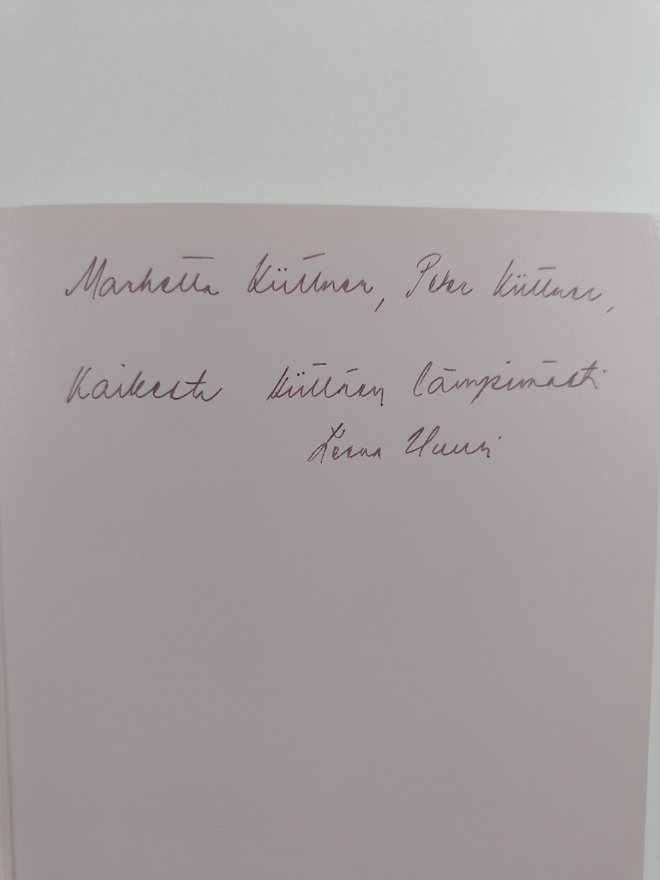 Marketta Küttner, Peter Küttner,
Kaikesta kiittäen lämpimästi
Leena Uusi